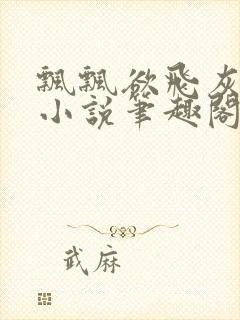 飄飄欲飛灰
小説筆趣閣
武麻